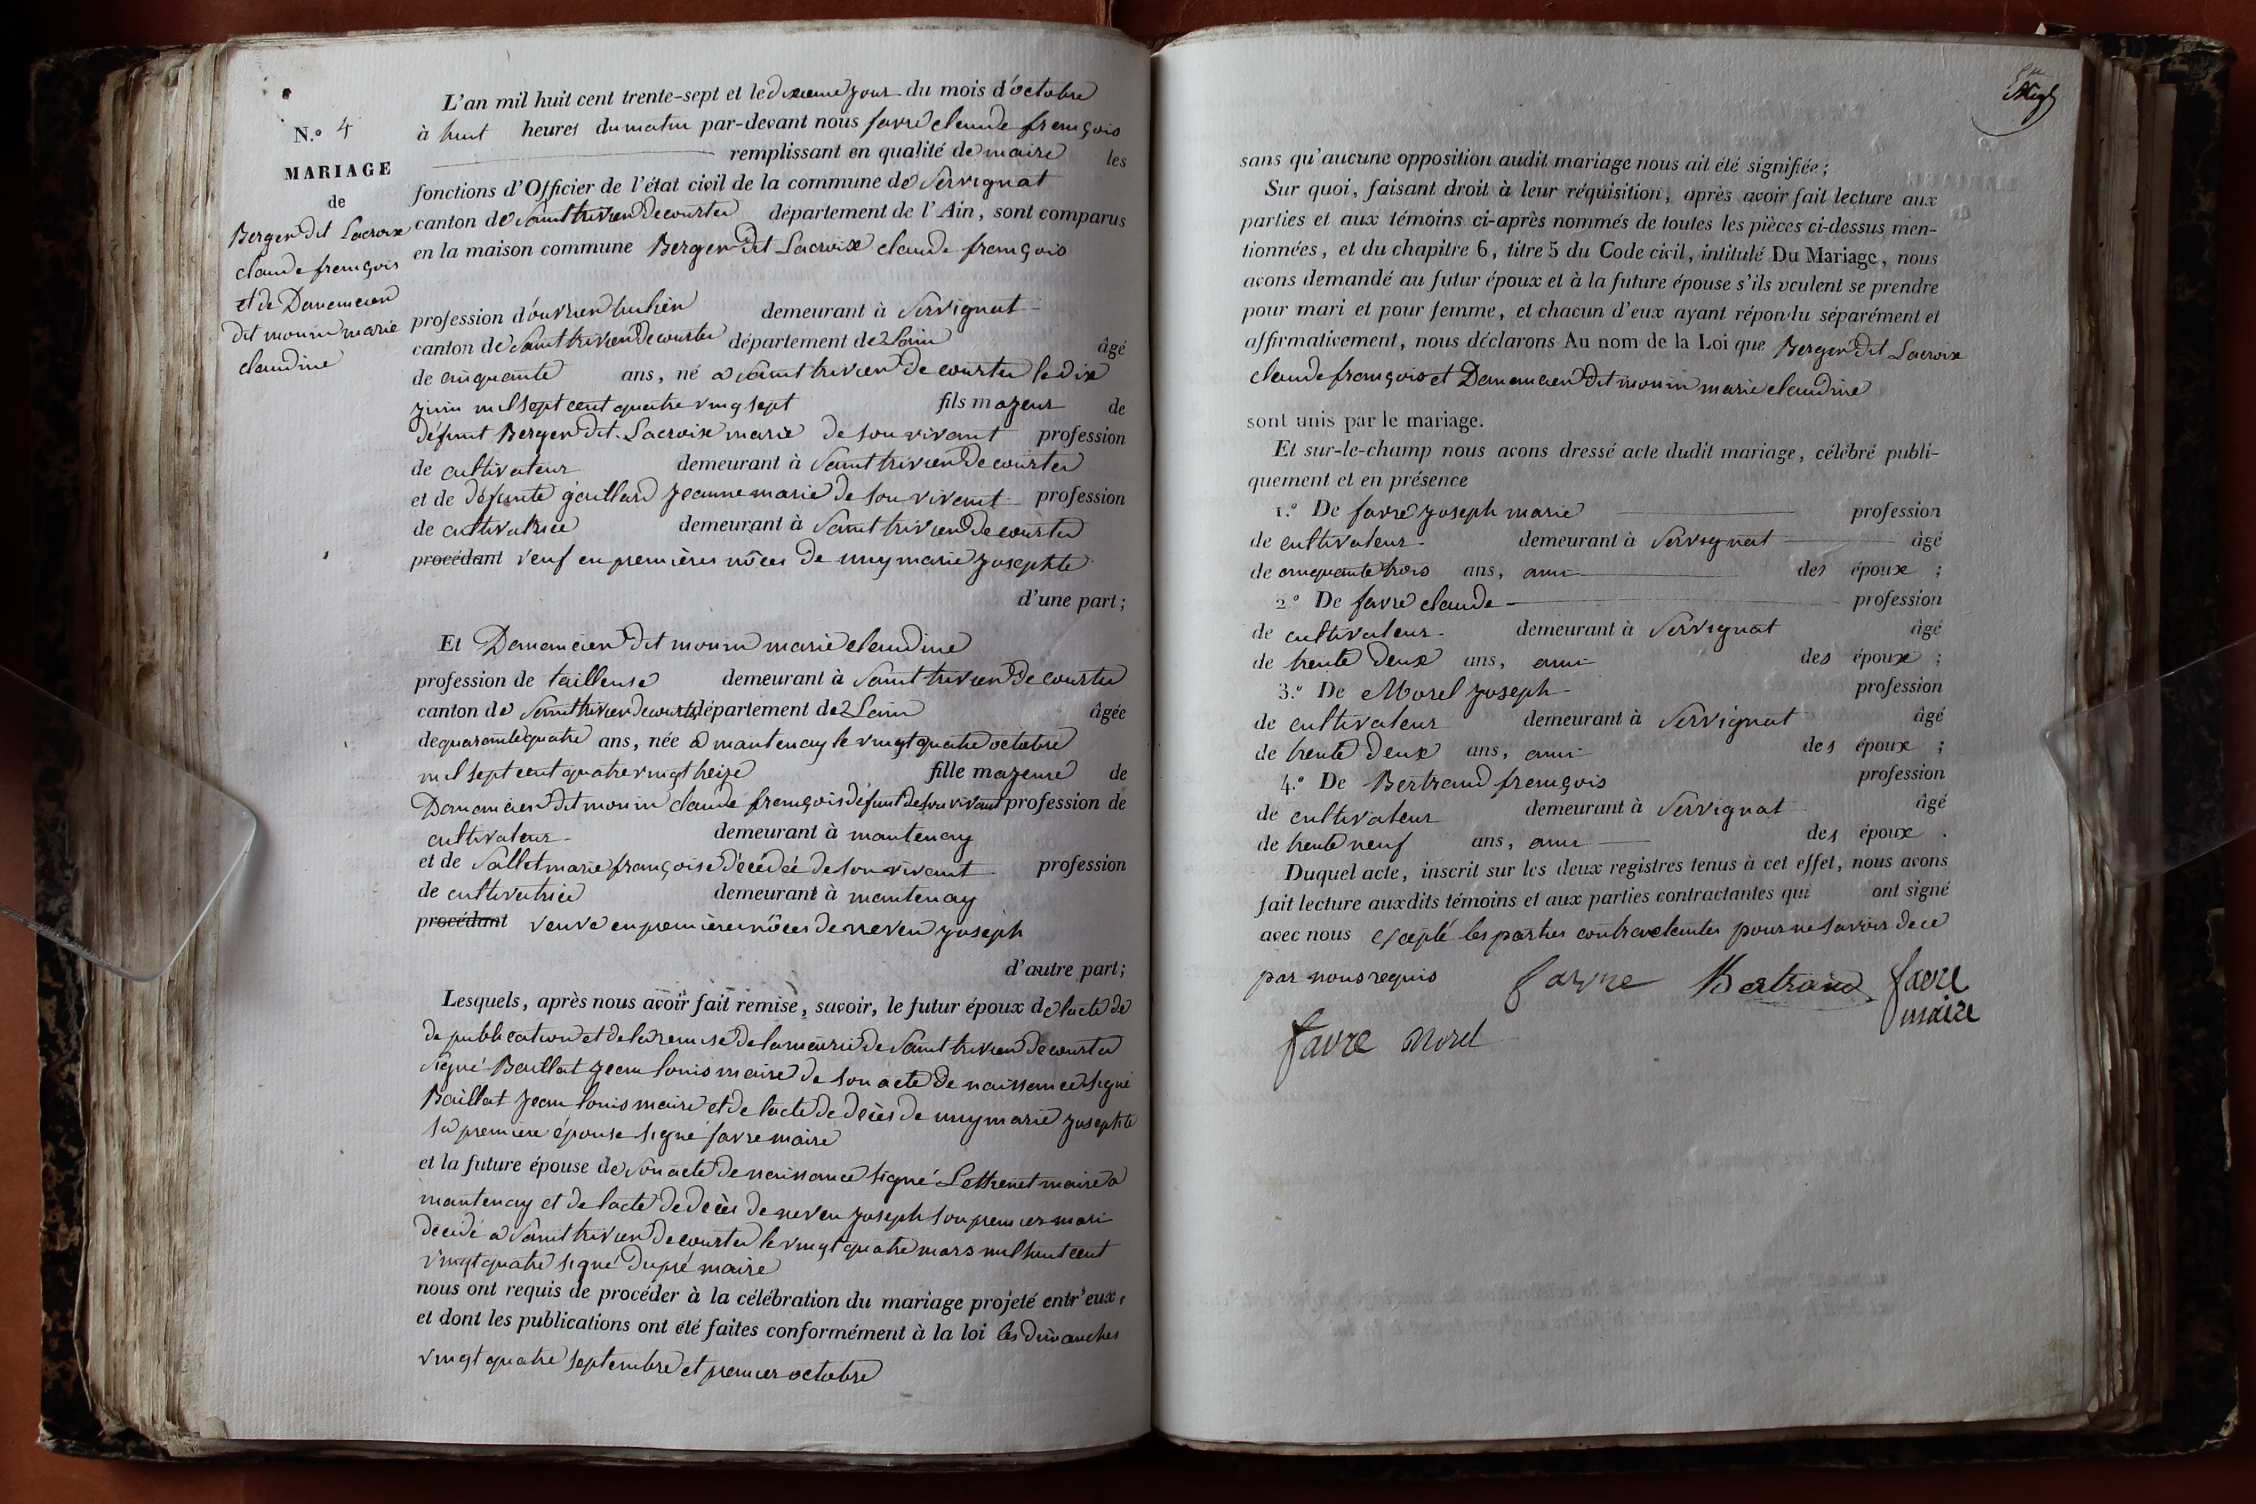 N.º 4
MARIAGE
de
Berger dit Lacroix
claude françois
et de Danancier
dit monin marie
claudine
L'an mil huit cent trente-sept et le dixieme jour du mois d'octobre
à huit heures du matin par-devant nous favre claude françois
remplissant en qualité de maire les
fonctions d'Officier de l'état civil de la commune de Servignat
canton de Saint trivier de courtes département de l'Ain, sont comparus
en la maison commune Berger dit Lacroix claude françois
profession d'ouvrier tuilier demeurant à Servignat
canton de Saint trivier de courtes département de Lain âgé
de cinquante ans, né a Saint trivier de courtes le dix
juin mil sept cent quatre ving sept fils majeur de
défunt Berger dit Lacroix marie de son vivant profession
de cultivateur demeurant à Saint trivier de courtes
et de défunte gaillard jeanne marie de son vivant profession
de cultivatrice demeurant à Saint trivier de courtes
procédant veuf en premières nôces de muy marie josephte
d'une part;
Et Danancier dit monin marie claudine
profession de tailleuse demeurant à Saint trivier de courtes
canton de Saint trivier de courtes département de Lain âgée
de quarante quatre ans, née a mantenay le vingt quatre octobre
mil sept cent quatre vingt treize fille majeure de
Danancier dit monin claude françois défunt de son vivant profession de
cultivateur demeurant à mantenay
et de Sallet marie françoise décédée de son vivant profession
de cultivatrice demeurant à mantenay
procédant veuve en première nôces de neveu joseph
d'autre part;
Lesquels, après nous avoir fait remise, savoir, le futur époux de l'acte de
de publication et de la remise de la mairie de Saint trivier de courtes
signé Baillat jean louis maire de son acte de naissance signé
Baillat jean louis maire et de l'acte de decès de muy marie josephte
sa première épouse signé favre maire
et la future épouse de son acte de naissance signé maire a
mantenay et de l'acte de decès de neveu joseph son premier mari
décédé a Saint trivier de courtes le vingt quatre mars mil huit cent
vingt quatre signé Dupré maire
nous ont requis de procéder à la célébration du mariage projeté entr'eux,
et dont les publications ont été faites conformément à la loi les dimanches
vingt quatre septembre et premier octobre
sans qu'aucune opposition audit mariage nous ait été signifiée;
Sur quoi, faisant droit à leur réquisition, après avoir fait lecture aux
parties et aux témoins ci-après nommés de toutes les pièces ci-dessus men-
tionnées, et du chapitre 6, titre 5 du Code civil, intitulé Du Mariage, nous
avons demandé au futur époux et à la future épouse s'ils veulent se prendre
pour mari et pour femme, et chacun d'eux ayant répondu séparément et
affirmativement, nous déclarons Au nom de la Loi que Berger dit Lacroix
claude françois et Danancier dit monin marie claudine
sont unis par le mariage.
Et sur-le-champ nous avons dressé acte dudit mariage, célébré publi-
quement et en présence
1.º De favre joseph marie profession
de cultivateur demeurant à Servignat âgé
de cinquante trois ans, ami des époux ;
2.º De favre claude profession
de cultivateur demeurant à Servignat âgé
de trente deux ans, ami des époux ;
3.º De Morel joseph profession
de cultivateur demeurant à Servignat âgé
de trente deux ans, ami des époux ;
4.º De Bertrand françois profession
de cultivateur demeurant à Servignat âgé
de trente neuf ans, ami des époux .
Duquel acte, inscrit sur les deux registres tenus à cet effet, nous avons
fait lecture auxdits témoins et aux parties contractantes qui ont signé
avec nous excepté les parties contractantes pour ne savoir de ce
par nous requis favre Bertrand favre
maire
favre Morel